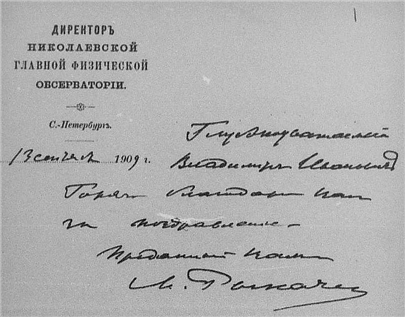 ДИРЕКТОРЪ
НИКОЛАЕВСКОЙ
ГЛАВНОЙ ФИЗИЧЕСКОЙ
ОБСЕРВАТОРІИ.
С.-Петербургъ.
Глубокоуважаемый
13 1909 г.
Владиміръ Ивановичъ
Горячо благодарю Васъ
за поздравленіе.
Преданный Вамъ
М. Рыкачевъ